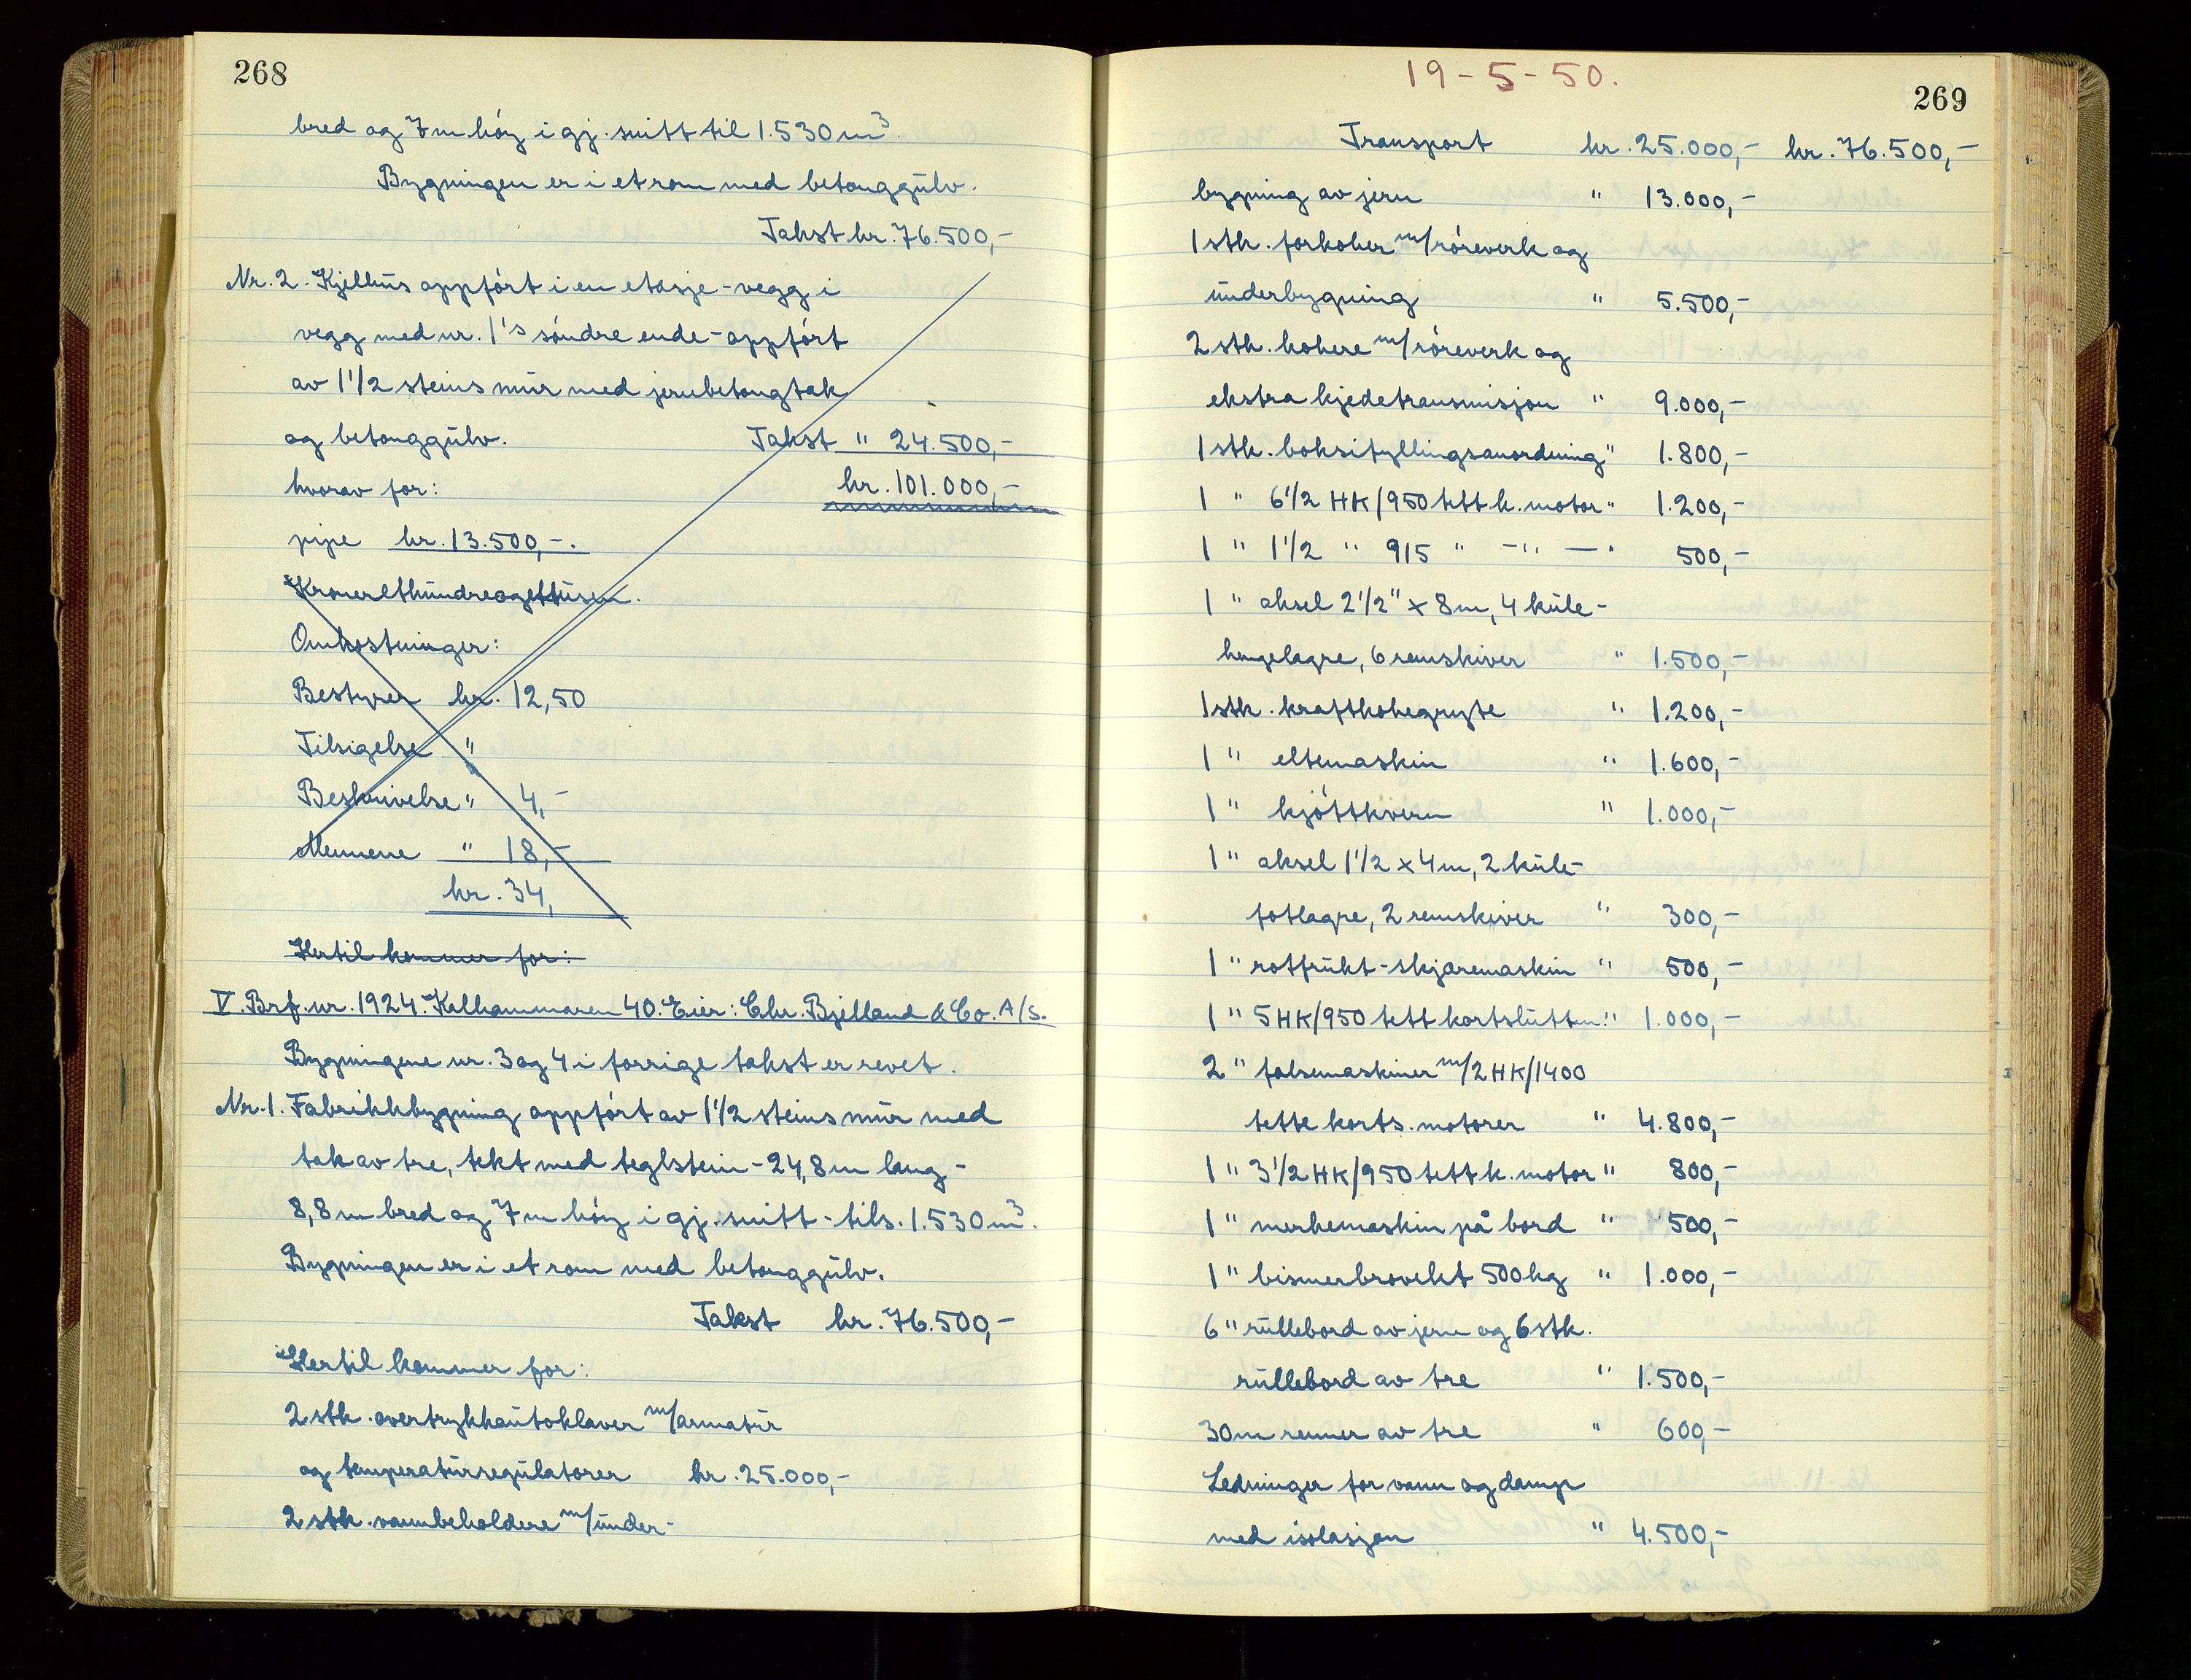 268
bred og 7 m høy i gj. snitt til 1.530 m³.
Bygningen er i et rom med betonggulv.
Takst kr. 76.500,-
Nr. 2. Kjelhus oppført i en etasje - vegg i
vegg med nr. 1's søndre ende - oppført
av 1 1/2 steins mur med jernbetongtak
og betonggulv. Takst " 24.500,-
hvorav for: kr. 101.000,-
pipe kr. 13.500,-.
Kroneretthundreogettusen.
Omkostninger:
Bestyrer kr. 12,50
Tilsigelse "
Beskrivelse " 4,-
Mennene " 18,-
kr. 34,
Hertil kommer for:
V. Brf. nr. 1924. Kalhammaren 40. Eier: Chr. Bjelland & Co. A/S.
Bygningene nr. 3 og 4 i forrige takst er revet.
Nr. 1. Fabrikkbygning oppført av 1 1/2 steins mur med
tak av tre, tekt med teglstein - 24,8 m lang -
8,8 m bred og 7 m høy i gj. snitt - tils. 1.530 m³.
Bygningen er i et rom med betonggulv.
Takst kr. 76.500,-
Hertil kommer for:
2 stk. overtrykkautoklaver m/armatur
og temperaturregulatorer kr. 25.000,-
2 stk. vannbeholdere m/under-
19-5-50.
269
Transport kr. 25.000,- kr. 76.500,-
bygning av jern " 13.000,-
1 stk. forkoker m/røreverk og
underbygning " 5.500,-
2 stk. kokere m/røreverk og
ekstra kjedetransmisjon " 9.000,-
1 stk. boksifyllingsanordning " 1.800,-
1 " 6 1/2 HK/950 tett k. motor " 1.200,-
1 " 1 1/2 " 915 " -"- -" 500,-
1 " aksel 2 1/2" x 8 m, 4 kule-
hengelagre, 6 remskiver " 1.500,-
1 stk. kraftkokegryte " 1.200,-
1 " eltemaskin " 1.600,-
1 " kjøttkvern " 1.000,-
1 " aksel 1 1/2 x 4 m, 2 kule-
fotlagre, 2 remskiver " 300,-
1 " rotfrukt-skjæremaskin " 500,-
1 " 5 HK/950 tett kortslutt m. " 1.000,-
2 " falsemaskiner m/2 HK/1400
tette korts. motorer " 4.800,-
1 " 3 1/2 HK/950 tett k. motor " 800,-
1 " merkemaskin på bord " 500,-
1 " bismerbrovekt 500 kg " 1.000,-
6 " rullebord av jern og 6 stk.
rullebord av tre " 1.500,-
30 m renner av tre " 600,-
Ledninger for vann og damp
med isolasjon " 4.500,-